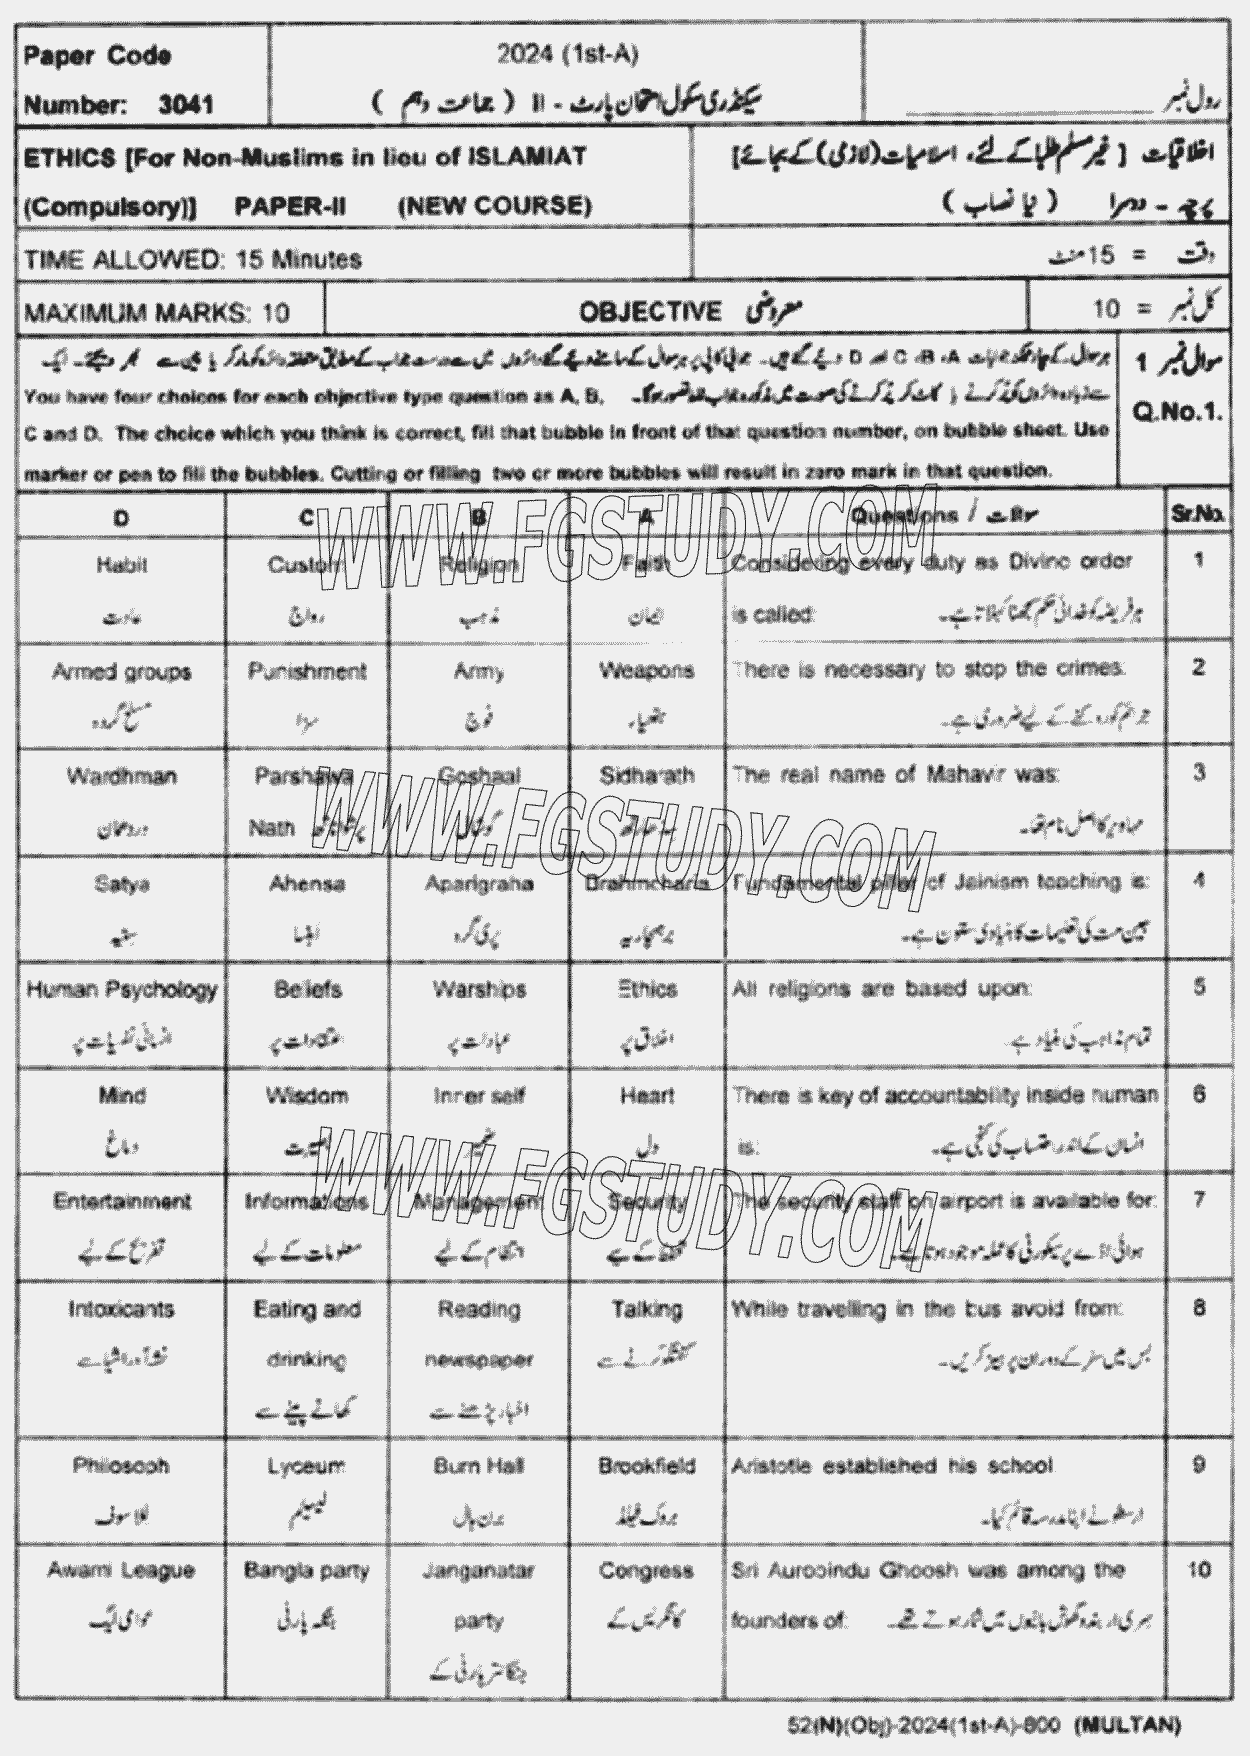 Paper Code
Number: 3041
2024 (1st-A)
سیکنڈری سکول امتحان پارٹ - II ( جماعت دہم )
رول نمبر
ETHICS [For Non-Muslims in lieu of ISLAMIAT
(Compulsory)] PAPER-II (NEW COURSE)
اخلاقیات [ غیر مسلم طلبا کے لئے، اسلامیات (لازمی) کے بجائے]
پرچہ - دوسرا ( نیا نصاب )
TIME ALLOWED: 15 Minutes
وقت = 15 منٹ
MAXIMUM MARKS: 10
OBJECTIVE معروضی
کل نمبر = 10
سوال نمبر 1
Q.No.1.
You have four choices for each objective type question as A, B,
C and D. The choice which you think is correct, fill that bubble in front of that question number, on bubble sheet. Use
marker or pen to fill the bubbles. Cutting or filling two or more bubbles will result in zero mark in that question.
D C B A Questions / سوالات Sr.No.
Habit Custom Religion Faith Considering every duty as Divine order 1
عادت رواج مذہب ایمان is called: ہر فریضہ کو خدائی حکم سمجھنا کہلاتا ہے۔
Armed groups Punishment Army Weapons There is necessary to stop the crimes: 2
مسلح گروہ سزا فوج ہتھیار جرائم کو روکنے کے لیے ضروری ہے۔
Wardhman Parshawa Goshaal Sidharath The real name of Mahavir was: 3
وردھمان Nath پارشواناتھ گوشال سدھارتھ مہاویر کا اصل نام تھا۔
Satya Ahensa Aparigraha Brahmcharia Fundamental pillar of Jainism teaching is: 4
ستیہ اہنسا پری گرہ برہمچاریہ جین مت کی تعلیمات کا بنیادی ستون ہے۔
Human Psychology Beliefs Warships Ethics All religions are based upon: 5
انسانی نفسیات پر اعتقادات پر عبادات پر اخلاق پر تمام مذاہب کی بنیاد ہے
Mind Wisdom Inner self Heart There is key of accountability inside human 6
دماغ بصیرت ضمیر دل is: انسان کے اندر احتساب کی کنجی ہے۔
Entertainment Informations Management Security The security staff on airport is available for: 7
تفریح کے لیے معلومات کے لیے انتظام کے لیے تحفظ کے لیے ہوائی اڈے پر سیکورٹی کا عملہ موجود ہوتا ہے۔
Intoxicants Eating and Reading Talking While travelling in the bus avoid from: 8
نشہ آور اشیا سے drinking newspaper گفتگو کرنے سے بس میں سفر کے دوران پرہیز کریں۔
کھانے پینے سے اخبار پڑھنے سے
Philosoph Lyceum Burn Hall Brookfield Aristotle established his school 9
فلاسوف لیسیئم برن ہال بروک فیلڈ ارسطو نے اپنا مدرسہ قائم کیا۔
Awami League Bangla party Janganatar Congress Sri Aurobindu Ghoosh was among the 10
عوامی لیگ بنگلہ پارٹی party کانگریس کے founders of: سری اربندو گھوش بانیوں میں شمار ہوتے تھے۔
جنگانتر پارٹی کے
52(N)(Obj)-2024(1st-A)-800 (MULTAN)
WWW.FGSTUDY.COM
WWW.FGSTUDY.COM
WWW.FGSTUDY.COM